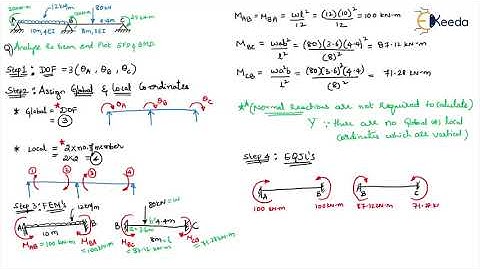 12kN/m
80kN
10m, 4EI
8m, 3EI
Q) Analyse the beam and Plot SFD & BMD.
Step1: DOF = 3 (θA, θB, θC)
Step2: Assign Global & Local Coordinates
* Global = DOF
= 3
θA θB θC
* Local = 2 x no. of member
= 2x2 = 4
1 2 3 4
Step 3: FEM's
12kN/m
80kN
A 10m B
B 3.6m 4.4m C
8m
MAB = 100 kN-m
MBA = 100kN-m
MBC = 87.12 kN-m
MCB = 71.28 kN-m
MAB = MBA = wl²/12 = (12)(10)²/12 = 100 kN-m
MBC = wab²/l² = (80)(3.6)(4.4)²/(8)² = 87.12 kN-m
MCB = wa²b/l² = (80)(3.6)²(4.4)/(8)² = 71.28 kN-m
** (Normal Reactions are not required to calculate)
∵ there are no Global or Local
Cordinates which are vertical)
Step 4: EQJL's
A B
100 kN-m 100 kN-m
B C
87.12 kN-m 71.28
Ekeeda